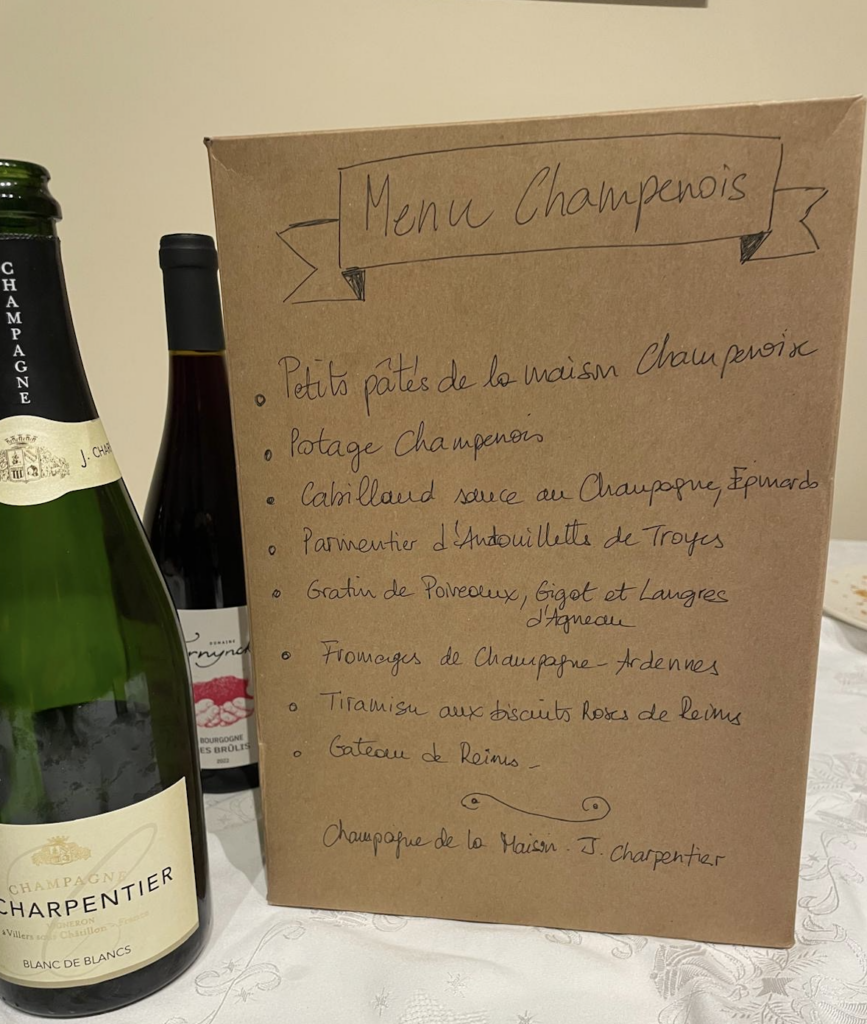 Menu Champenois
Petits pâtés de la maison Champenoise
Potage Champenois
Cabillaud sauce au Champagne, Épinards
Parmentier d'Andouillette de Troyes
Gratin de Poireaux, Gigot et Langres
d'Agneau
Fromages de Champagne-Ardennes
Tiramisu aux biscuits Roses de Reims
Gateau de Reims -
Champagne de la Maison. J. Charpentier
CHAMPAGNE
J. CHAR
CHAMPAGNE
CHARPENTIER
VIGNERON
à Villers sous Châtillon - France
BLANC DE BLANCS
DOMAINE
rnynck
BOURGOGNE
ES BRÛLIS
2022